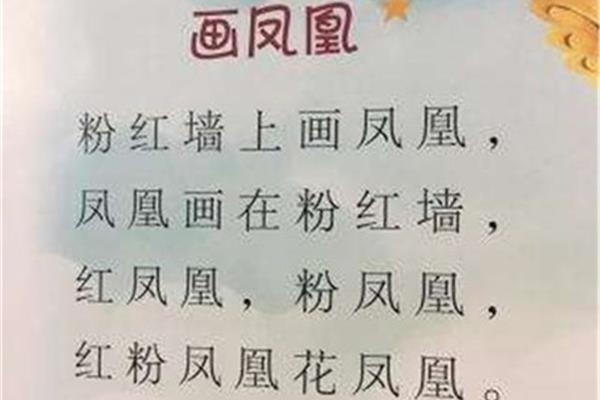 画凤凰
粉红墙上画凤凰，
凤凰画在粉红墙，
红凤凰，粉凤凰，
红粉凤凰花凤凰。